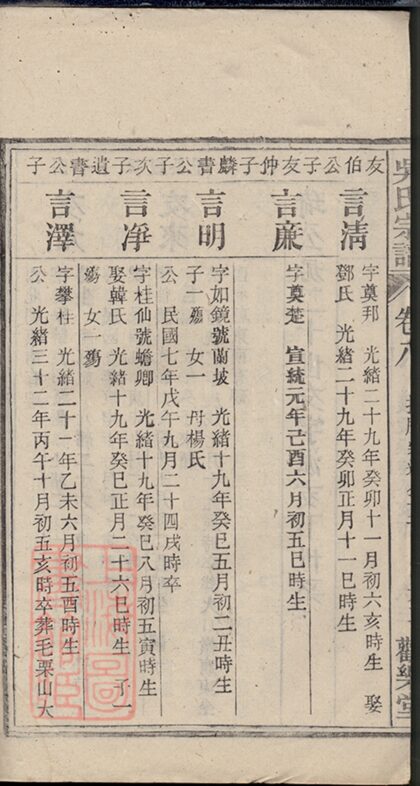 吳氏宗譜
卷八
觀樂堂
友伯公子
言清
字奠邦 光緒二十九年癸卯十一月初六亥時生 娶
鄧氏 光緒二十九年癸卯正月十一巳時生
友仲子
言廉
字奠楚 宣統元年己酉六月初五巳時生
麟書公子
言明
字如鏡號蘭坡 光緒十九年癸巳五月初二丑時生
子一殤 女一 母楊氏
公 民國七年戊午九月二十四戌時卒
次子
言淨
字桂仙號蟾卿 光緒十九年癸巳八月初五寅時生
娶韓氏 光緒十九年癸巳正月二十六巳時生 子一
殤 女一殤
遺書公子
言澤
字攀桂 光緒二十一年乙未六月初五酉時生
公 光緒三十二年丙午十月初五亥時卒葬毛栗山大